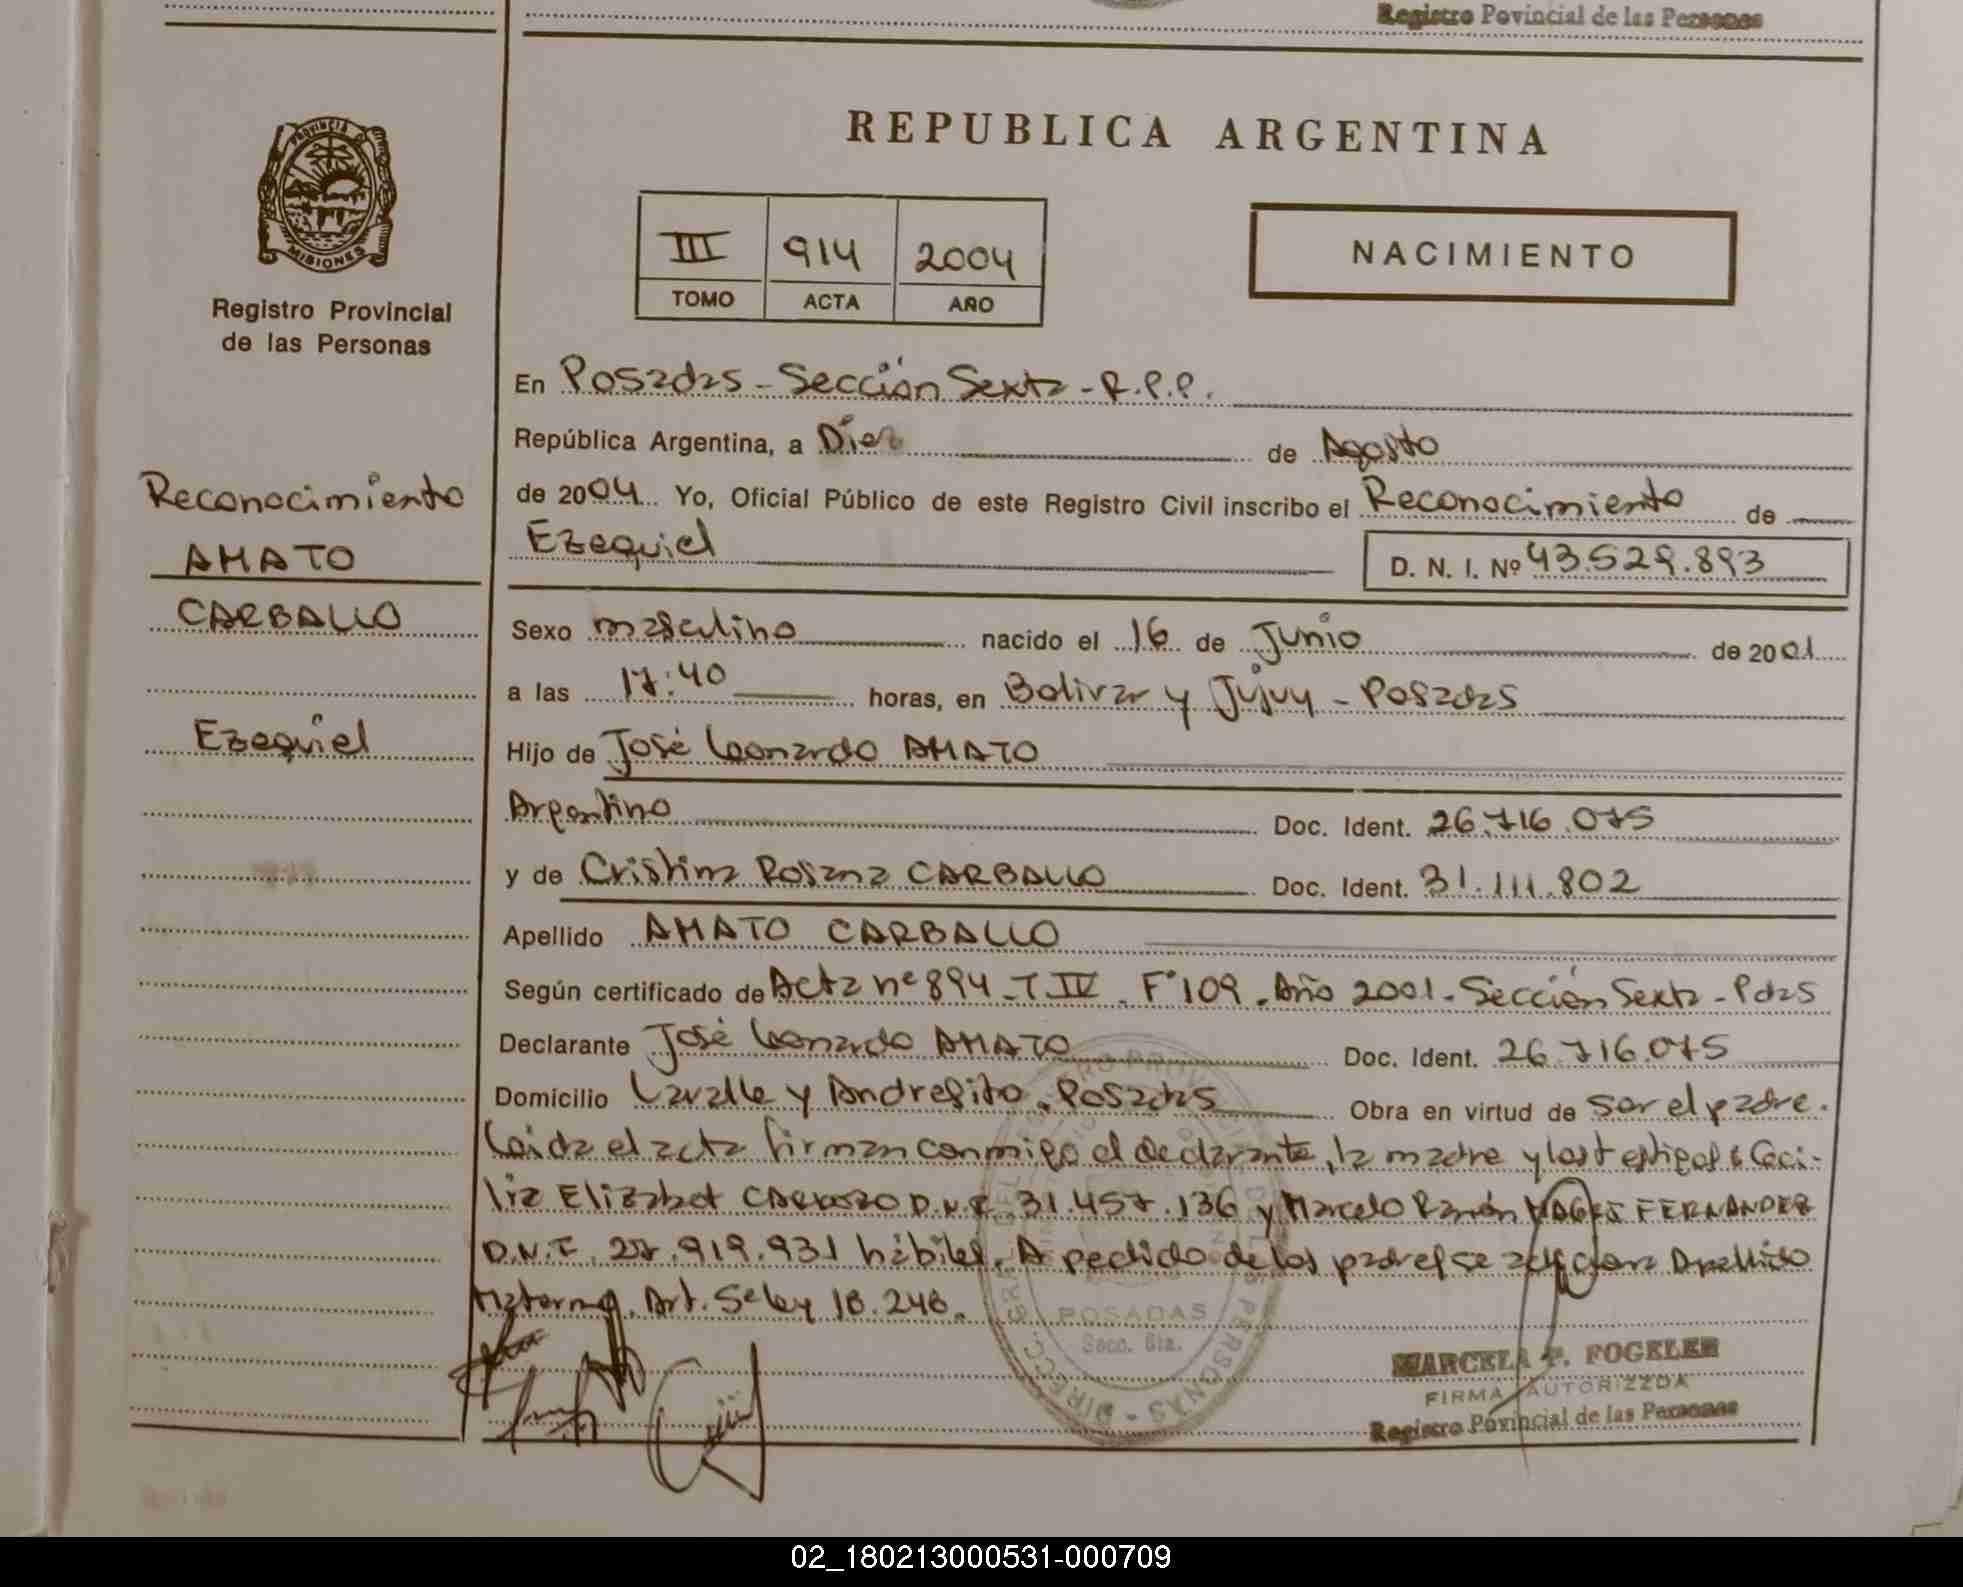 Registro Povincial de las Personas
PROVINCIA D
MISIONES
Registro Provincial
de las Personas
Reconocimiento
AMATO
CARBALLO
Ezequiel
REPUBLICA ARGENTINA
III 914 2004
TOMO ACTA AÑO
NACIMIENTO
En Posadas - Sección Sexta - R.P.P.
República Argentina, a Diez de Agosto
de 2004 Yo, Oficial Público de este Registro Civil inscribo el Reconocimiento de
Ezequiel D. N. I. Nº 43.529.893
Sexo masculino nacido el 16 de Junio de 2001
a las 17:40 horas, en Bolivar y Jujuy - Posadas
Hijo de José Leonardo AMATO
Argentino Doc. Ident. 26.716.075
y de Cristina Rosana CARBALLO Doc. Ident. 31.111.802
Apellido AMATO CARBALLO
Según certificado de Acta nº 894 - T IV. Fº 109. Año 2001. Sección Sexta - Pdas
Declarante José Leonardo AMATO Doc. Ident. 26.716.075
Domicilio Lavalle y Andresito. Posadas Obra en virtud de ser el padre.
Leida el acta firman conmigo el declarante, la madre y los testigos: Ceci-
lia Elizabet D.N.I. 31.457.136 y Marcelo Ramón FERNANDEZ
D.N.I. 27.919.931 hábiles. A pedido de los padres se adiciona Apellido
Materno. Art. 5º ley 18.248.
POSADAS
Secc. 6ta.
MARCELA P. FOGELER
FIRMA AUTORIZZDA
Registro Povincial de las Personas
02_180213000531-000709